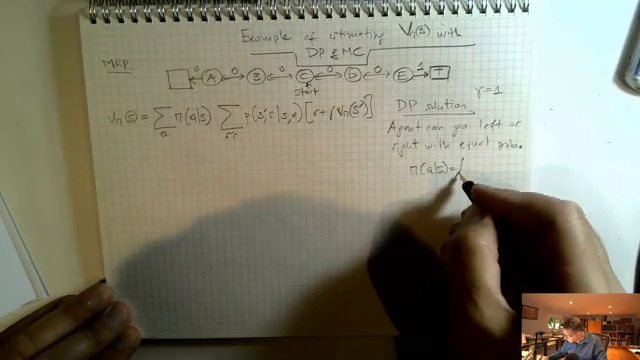 Example of estimating Vπ(s) with
DP & MC
MRP
0 0 0 0 0 1
A B C D E T
start
Vπ(s) = Σ π(a|s) Σ p(s',r|s,a) [r + γ Vπ(s')]
a s',r
DP solution γ=1
Agent can go left or
right with equal prob.
π(a|s) =